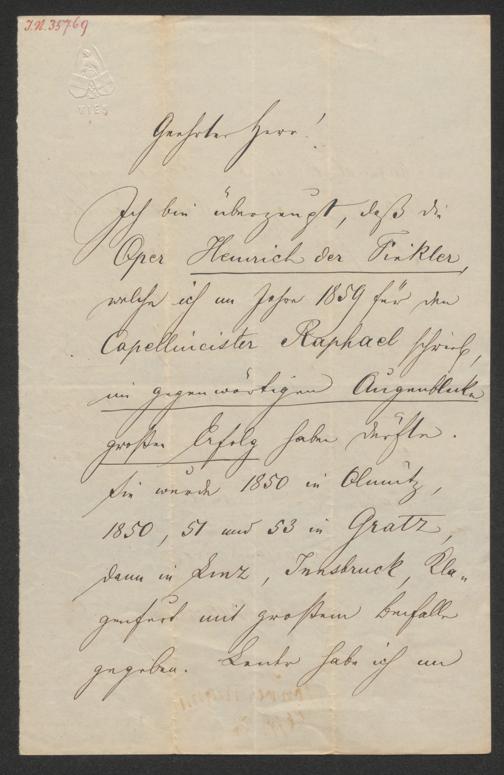 J.N. 35769
VIEN
Geehrter Herr!
Ich bin überzeugt, daß die
Oper Heinrich der Finkler,
welche ich im Jahre 1859 für den
Capellmeister Raphael schrieb,
im gegenwärtigen Augenblicke
großen Erfolg haben dürfte.
Sie wurde 1850 in Olmütz,
1850, 51 und 53 in Gratz,
dann in Linz, Innsbruck, Kla-
genfurt mit großem Beifalle
gegeben. habe ich nur